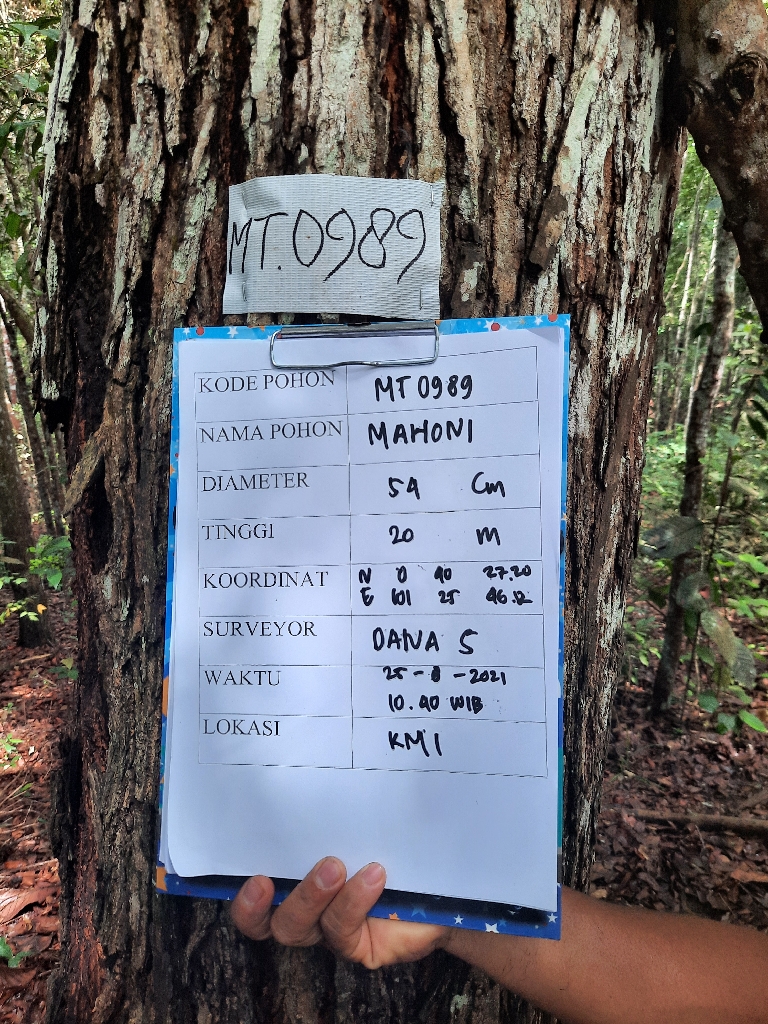 MT.0989
KODE POHON MT 0989
NAMA POHON MAHONI
DIAMETER 54 Cm
TINGGI 20 m
KOORDINAT N 0 40 27.20
E 101 25 46.12
SURVEYOR DANA S
WAKTU 25 - 8 - 2021
10.40 WIB
LOKASI KMI